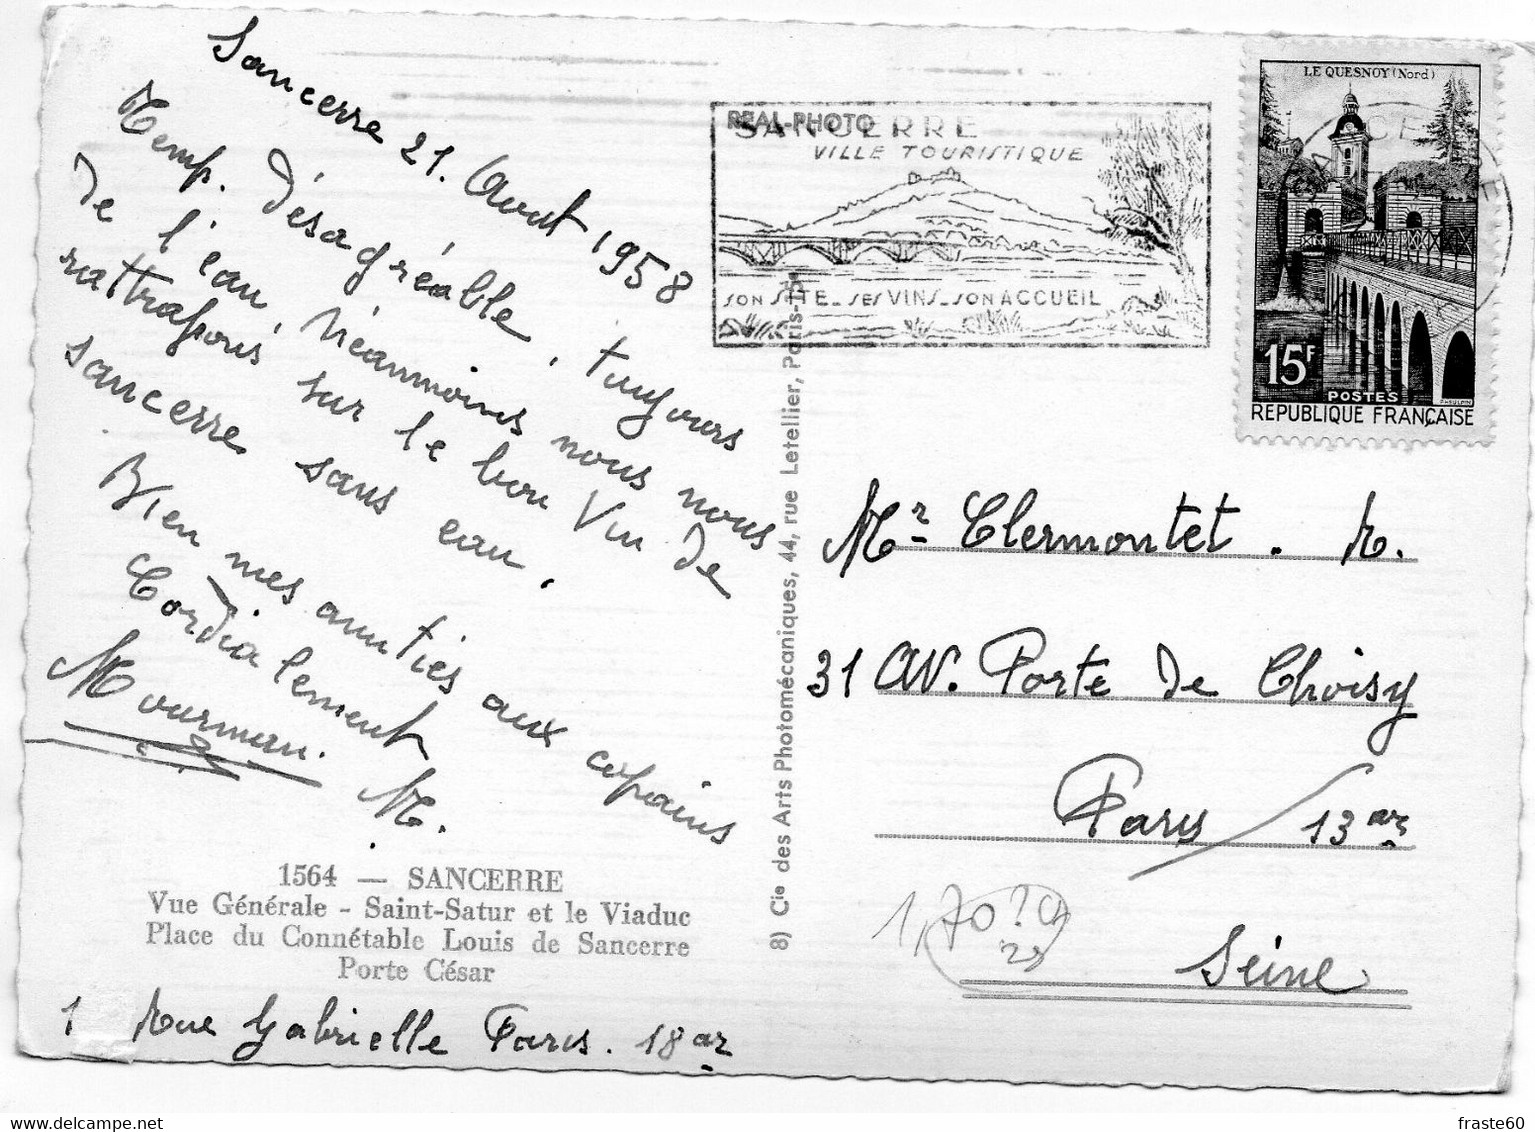 Sancerre 21. Aout 1958
Temp. désagréable, tujours
de l'eau, Néanmoins nous nous
rattrapons sur le bon Vin de
sancerre sans eau.
Bien mes amitiés aux copains
Cordialement
Mourman. M.
1564 — SANCERRE
Vue Générale - Saint-Satur et le Viaduc
Place du Connétable Louis de Sancerre
Porte César
1 Rue Gabrielle Paris. 18 ar
8) Cie des Arts Photomécaniques, 44, rue Letellier, Paris-15e
REAL-PHOTO
SANCERRE
VILLE TOURISTIQUE
SON SITE - SES VINS - SON ACCUEIL
LE QUESNOY (Nord)
SANCERRE
15F
POSTES
REPUBLIQUE FRANÇAISE
Mr Clermontet. R.
31 AV. Porte de Choisy
Paris / 13 ar
Seine
1,70
fraste60